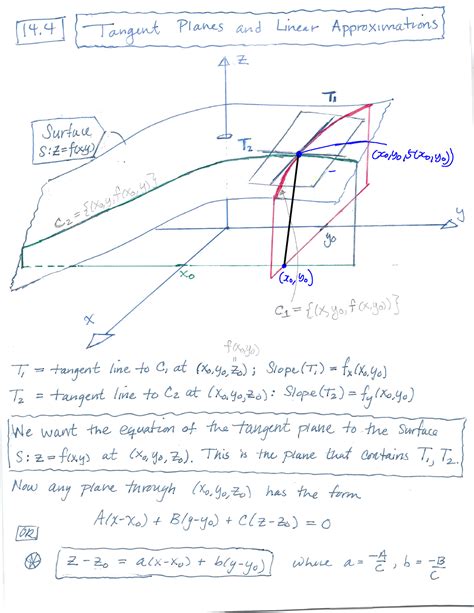 14.4 Tangent Planes and Linear Approximations
z
T₁
Surface
S: z=f(x,y)
T₂
(x₀,y₀,f(x₀,y₀))
C₂ = {(x₀,y,f(x₀,y)}
y
y₀
x₀
(x₀,y₀)
x
C₁ = {(x,y₀,f(x,y₀))}
f(x₀,y₀)
T₁ = tangent line to C₁ at (x₀,y₀,z₀); Slope(T₁) = fₓ(x₀,y₀)
T₂ = tangent line to C₂ at (x₀,y₀,z₀): Slope(T₂) = f_y(x₀,y₀)
We want the equation of the tangent plane to the Surface
S: z = f(x,y) at (x₀,y₀,z₀). This is the plane that contains T₁, T₂.
Now any plane through (x₀,y₀,z₀) has the form
A(x-x₀) + B(y-y₀) + C(z-z₀) = 0
OR
z-z₀ = a(x-x₀) + b(y-y₀) where a = -A/C, b = -B/C